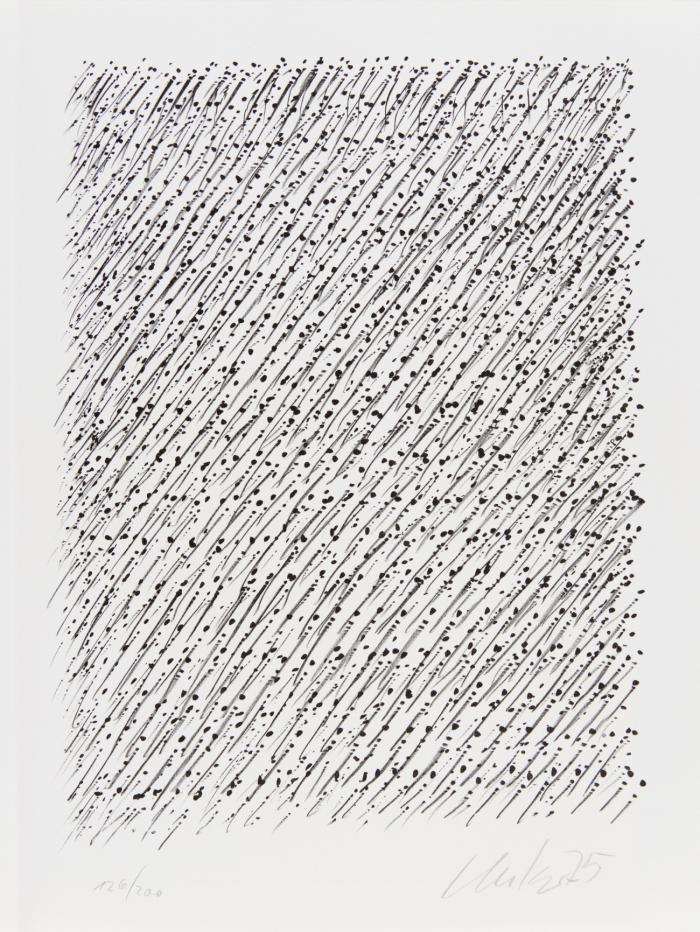 126/200
Uecker 75